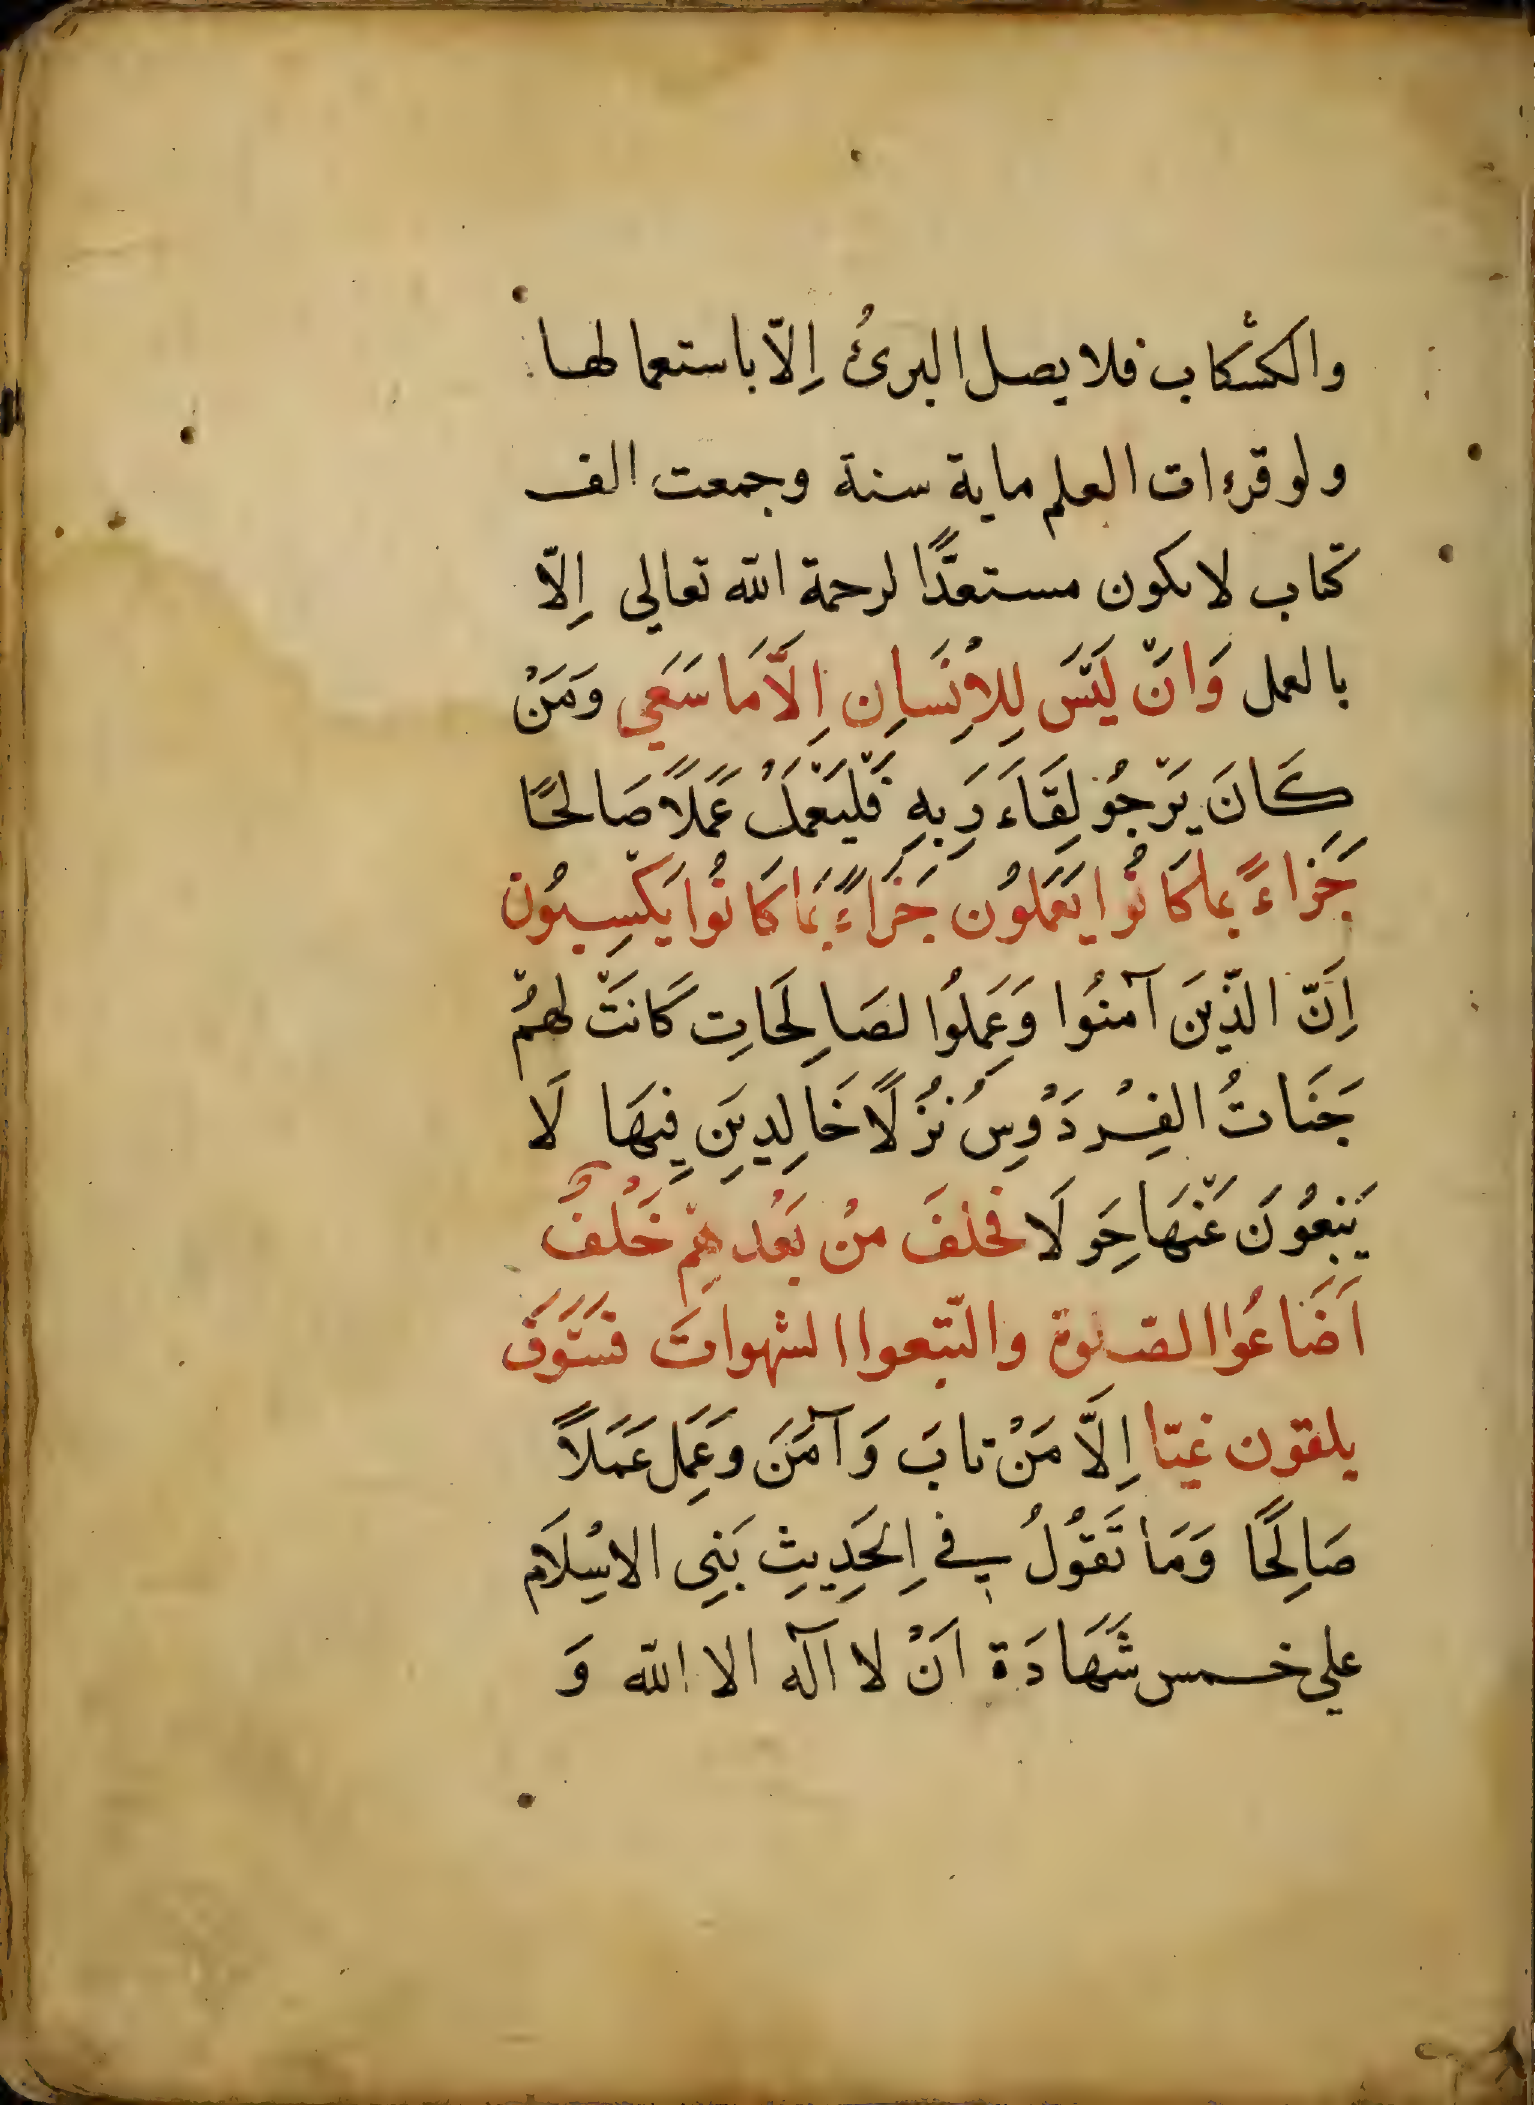 والكشكاب فلا يصل البرئُ اِلّا باستعمالها
ولو قرءات العلم ماية سنة وجمعت الف
كتاب لا ىكون مستعدًّا لرحمة الله تعالي اِلّا
بالعمل وَانّ لَيْسَ لِلاِنْسَانِ اِلَّا مَا سَعَي وَمَنْ
كَانَ يَرْجُو لِقَاءَ رَبِهِ فَلْيَعْمَلْ عَمَلًا صَالحًا
جَزاءً بما كَانُوا يَعَملوُن جَزَاءً بمَا كَانُوا يَكْسِبُون
اِنَّ الذّينَ آمنُوا وَعَمِلوُا لصَالِحَاتِ كَانَتْ لهمُْ
جَنَاتُ الفِرْدَوْسِ نُزُلًا خَالِدِينَ فِيهَا لَا
يَبْغُونَ عَنْهَا حِوَلَا فخلفَ منْ بَعْدهِمْ خَلْفٌ
اَضَاعُوا الصلوة والتّبعوا الشهوات فَسَوَفَ
يلقون غيّا اِلَّا مَنْ تابَ وَآمَنَ وعَمِلَ عَمَلاً
صَالِحًا وَمَا تَقوُلُ في اِلحَدِيثِ بَنِى الاسْلَام
علي خمس شَهَادَة اَنْ لا اآله الا الله وَ